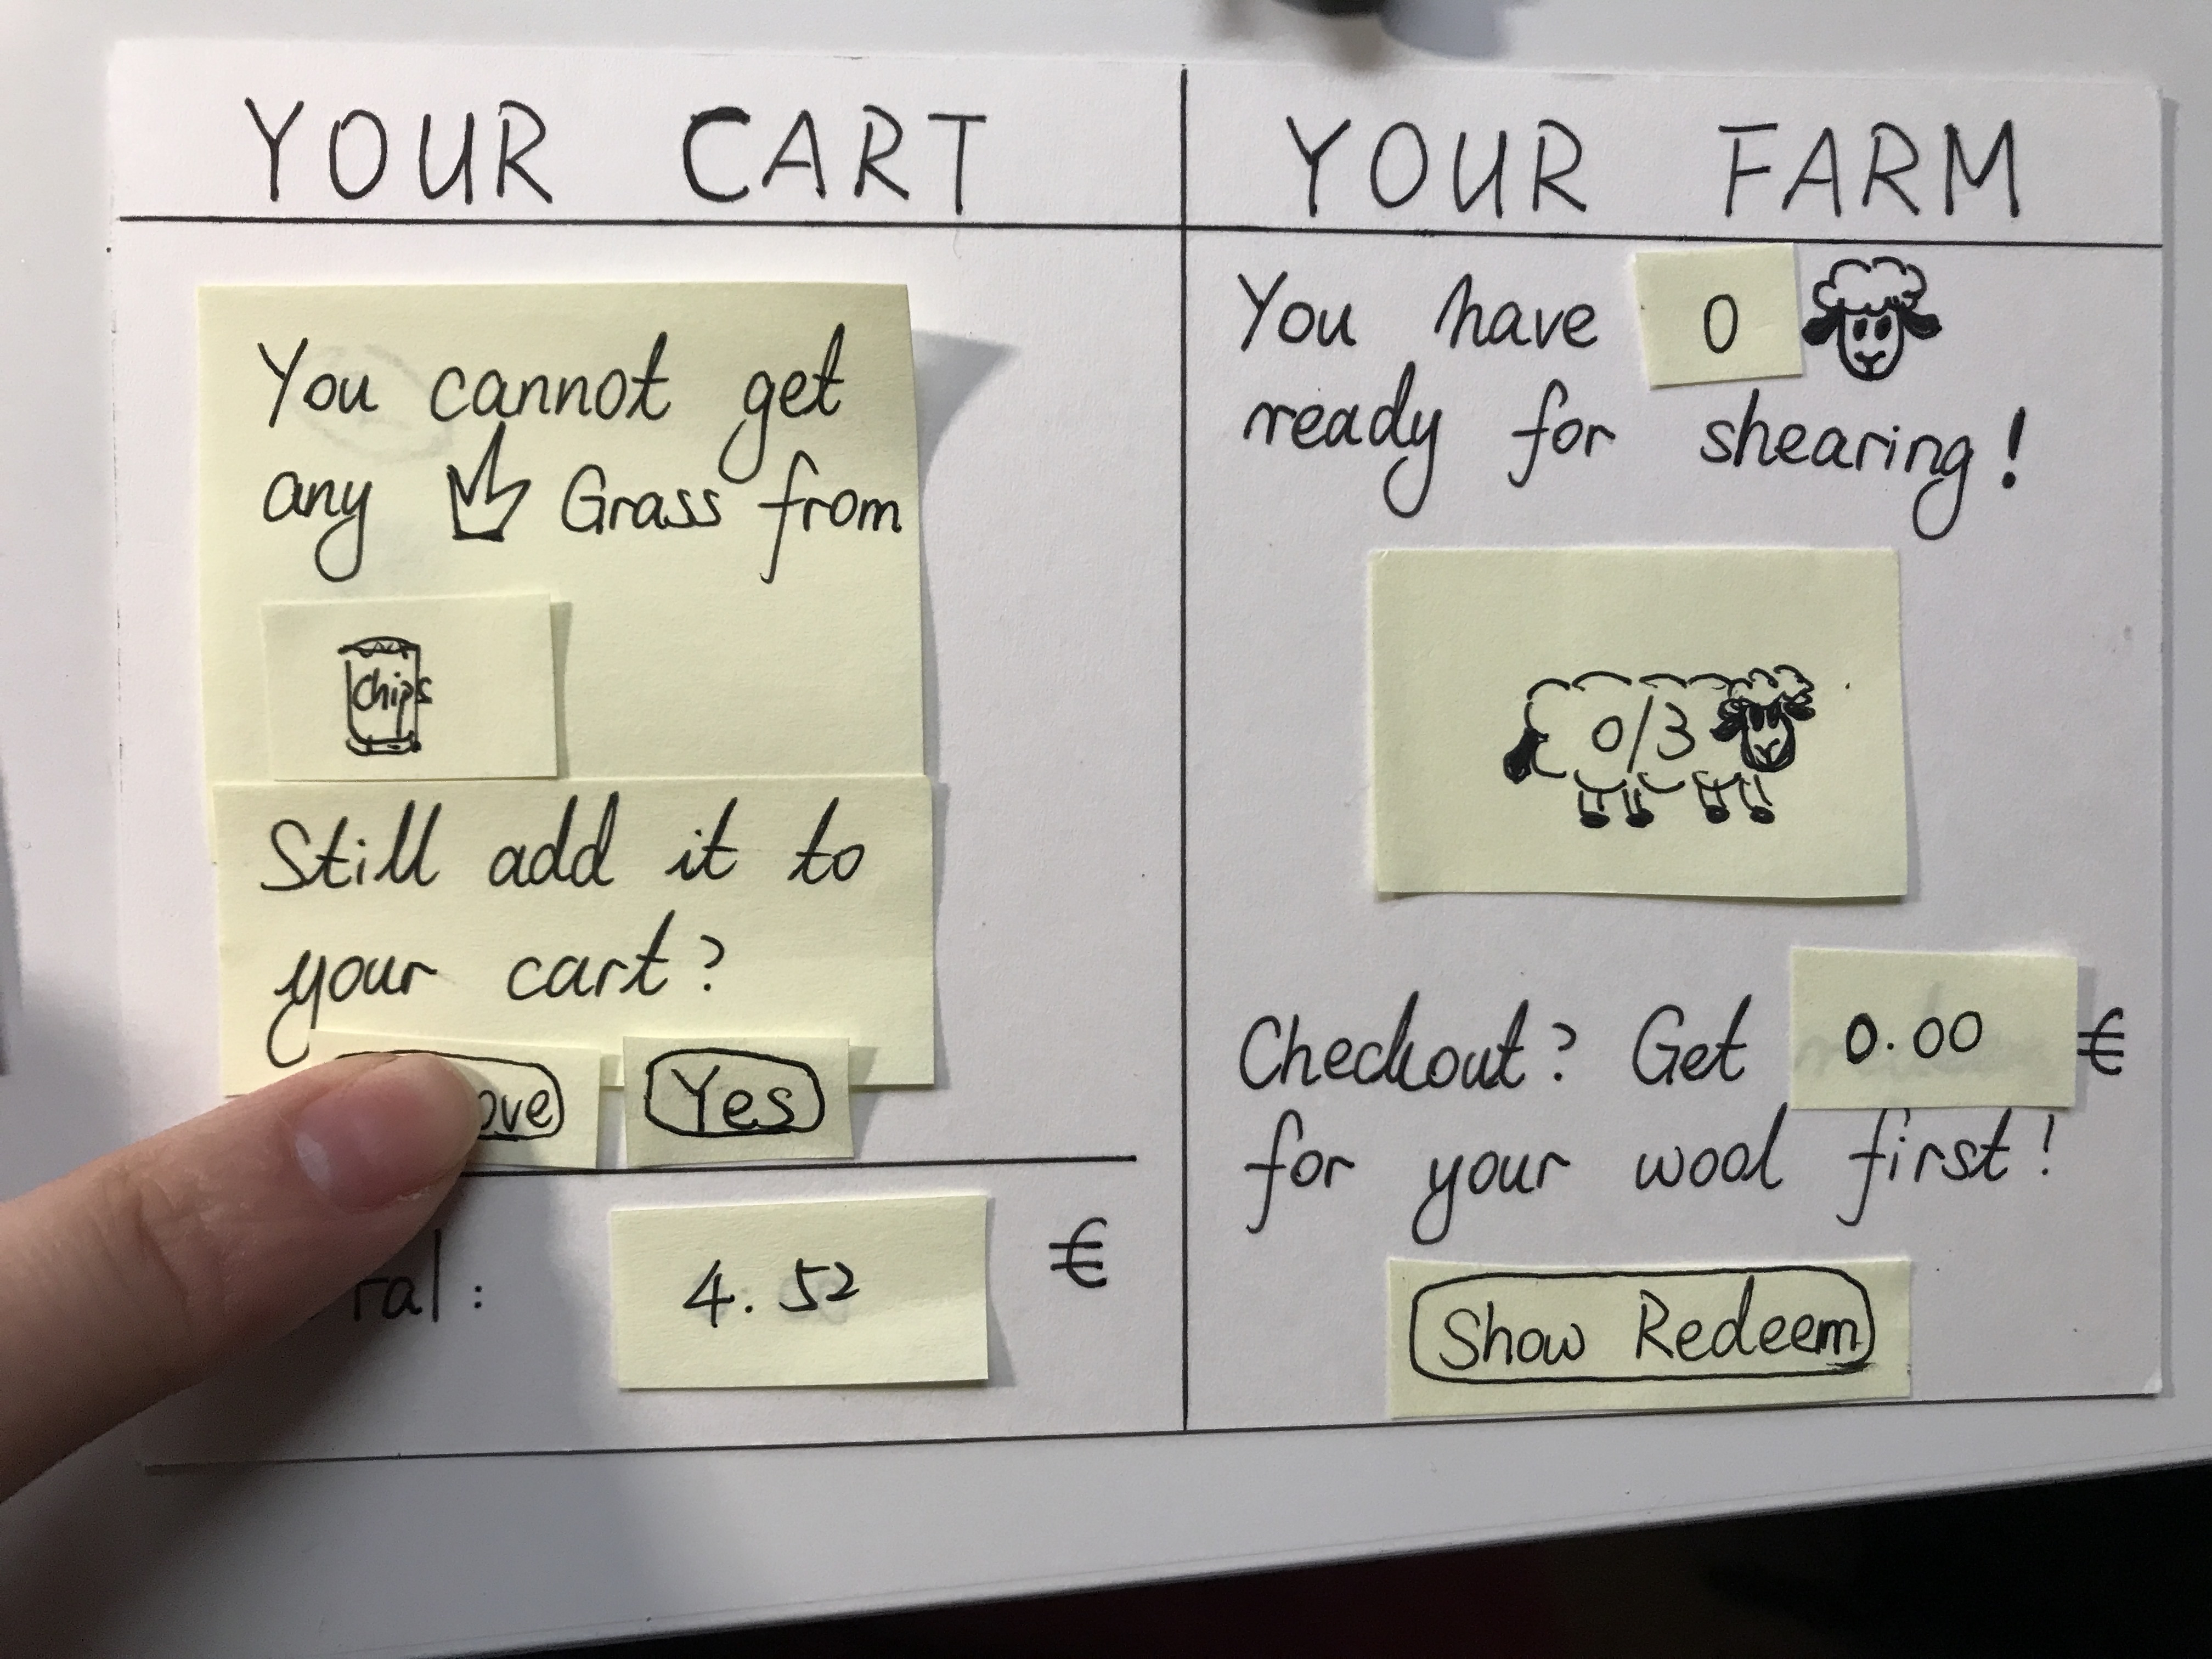 YOUR CART
You cannot get
any Grass from
Chips
Still add it to
your cart?
Yes
4.52 €
YOUR FARM
You have 0
ready for shearing!
0/3
Checkout? Get 0.00 €
for your wool first!
Show Redeem